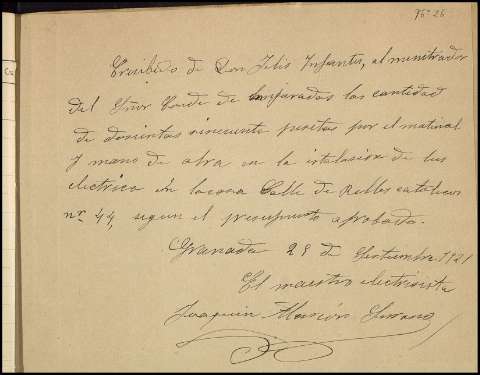 Nº 26
Erecibido de Don Felis Infantes, al menistrador
del Señor Conde de Amparadas las cantidad
de dosientas cincuenta pesetas por el matirial
y mano de obra en la istalasion de lus
electrica en la casa Calle de Relles catolicos
nº 44, segun el presupuesto aprobado.
Granada 29 de Setiembre 1921
El maestro electrisista
Joaquin Alarcón Serrano